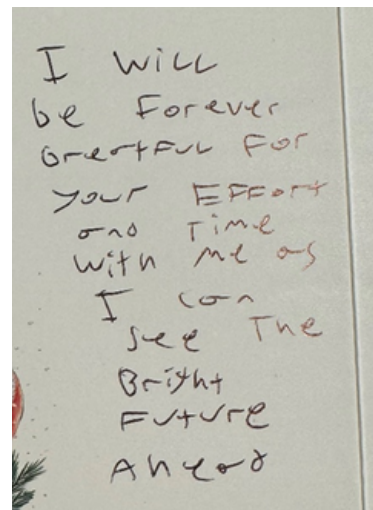 I WILL
be Forever
Greatful For
your EFFort
and Time
with me as
I can
see The
Bright
Future
Ahead